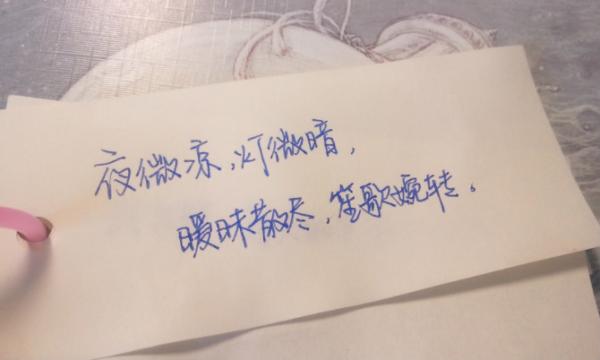 夜微凉,灯微暗,
暧昧散尽,笙歌婉转。